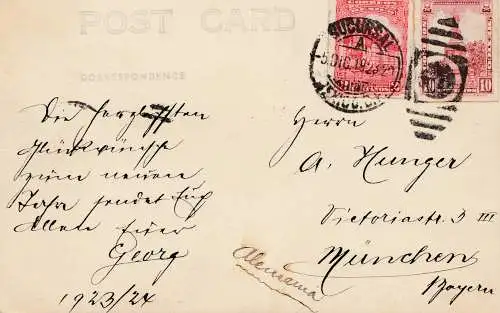 POST CARD
CORRESPONDENCE
SUCURSAL
A
5 DIC. 1923
MEXICO, D.F.
10
Die herzlichsten
Glückwünsche
zum neuen
Jahre sendet Euch
Allen Euer
Georg
1923/24
Herrn
A. Hunger
Victoriastr. 3 III
München
Bayern
Alemania